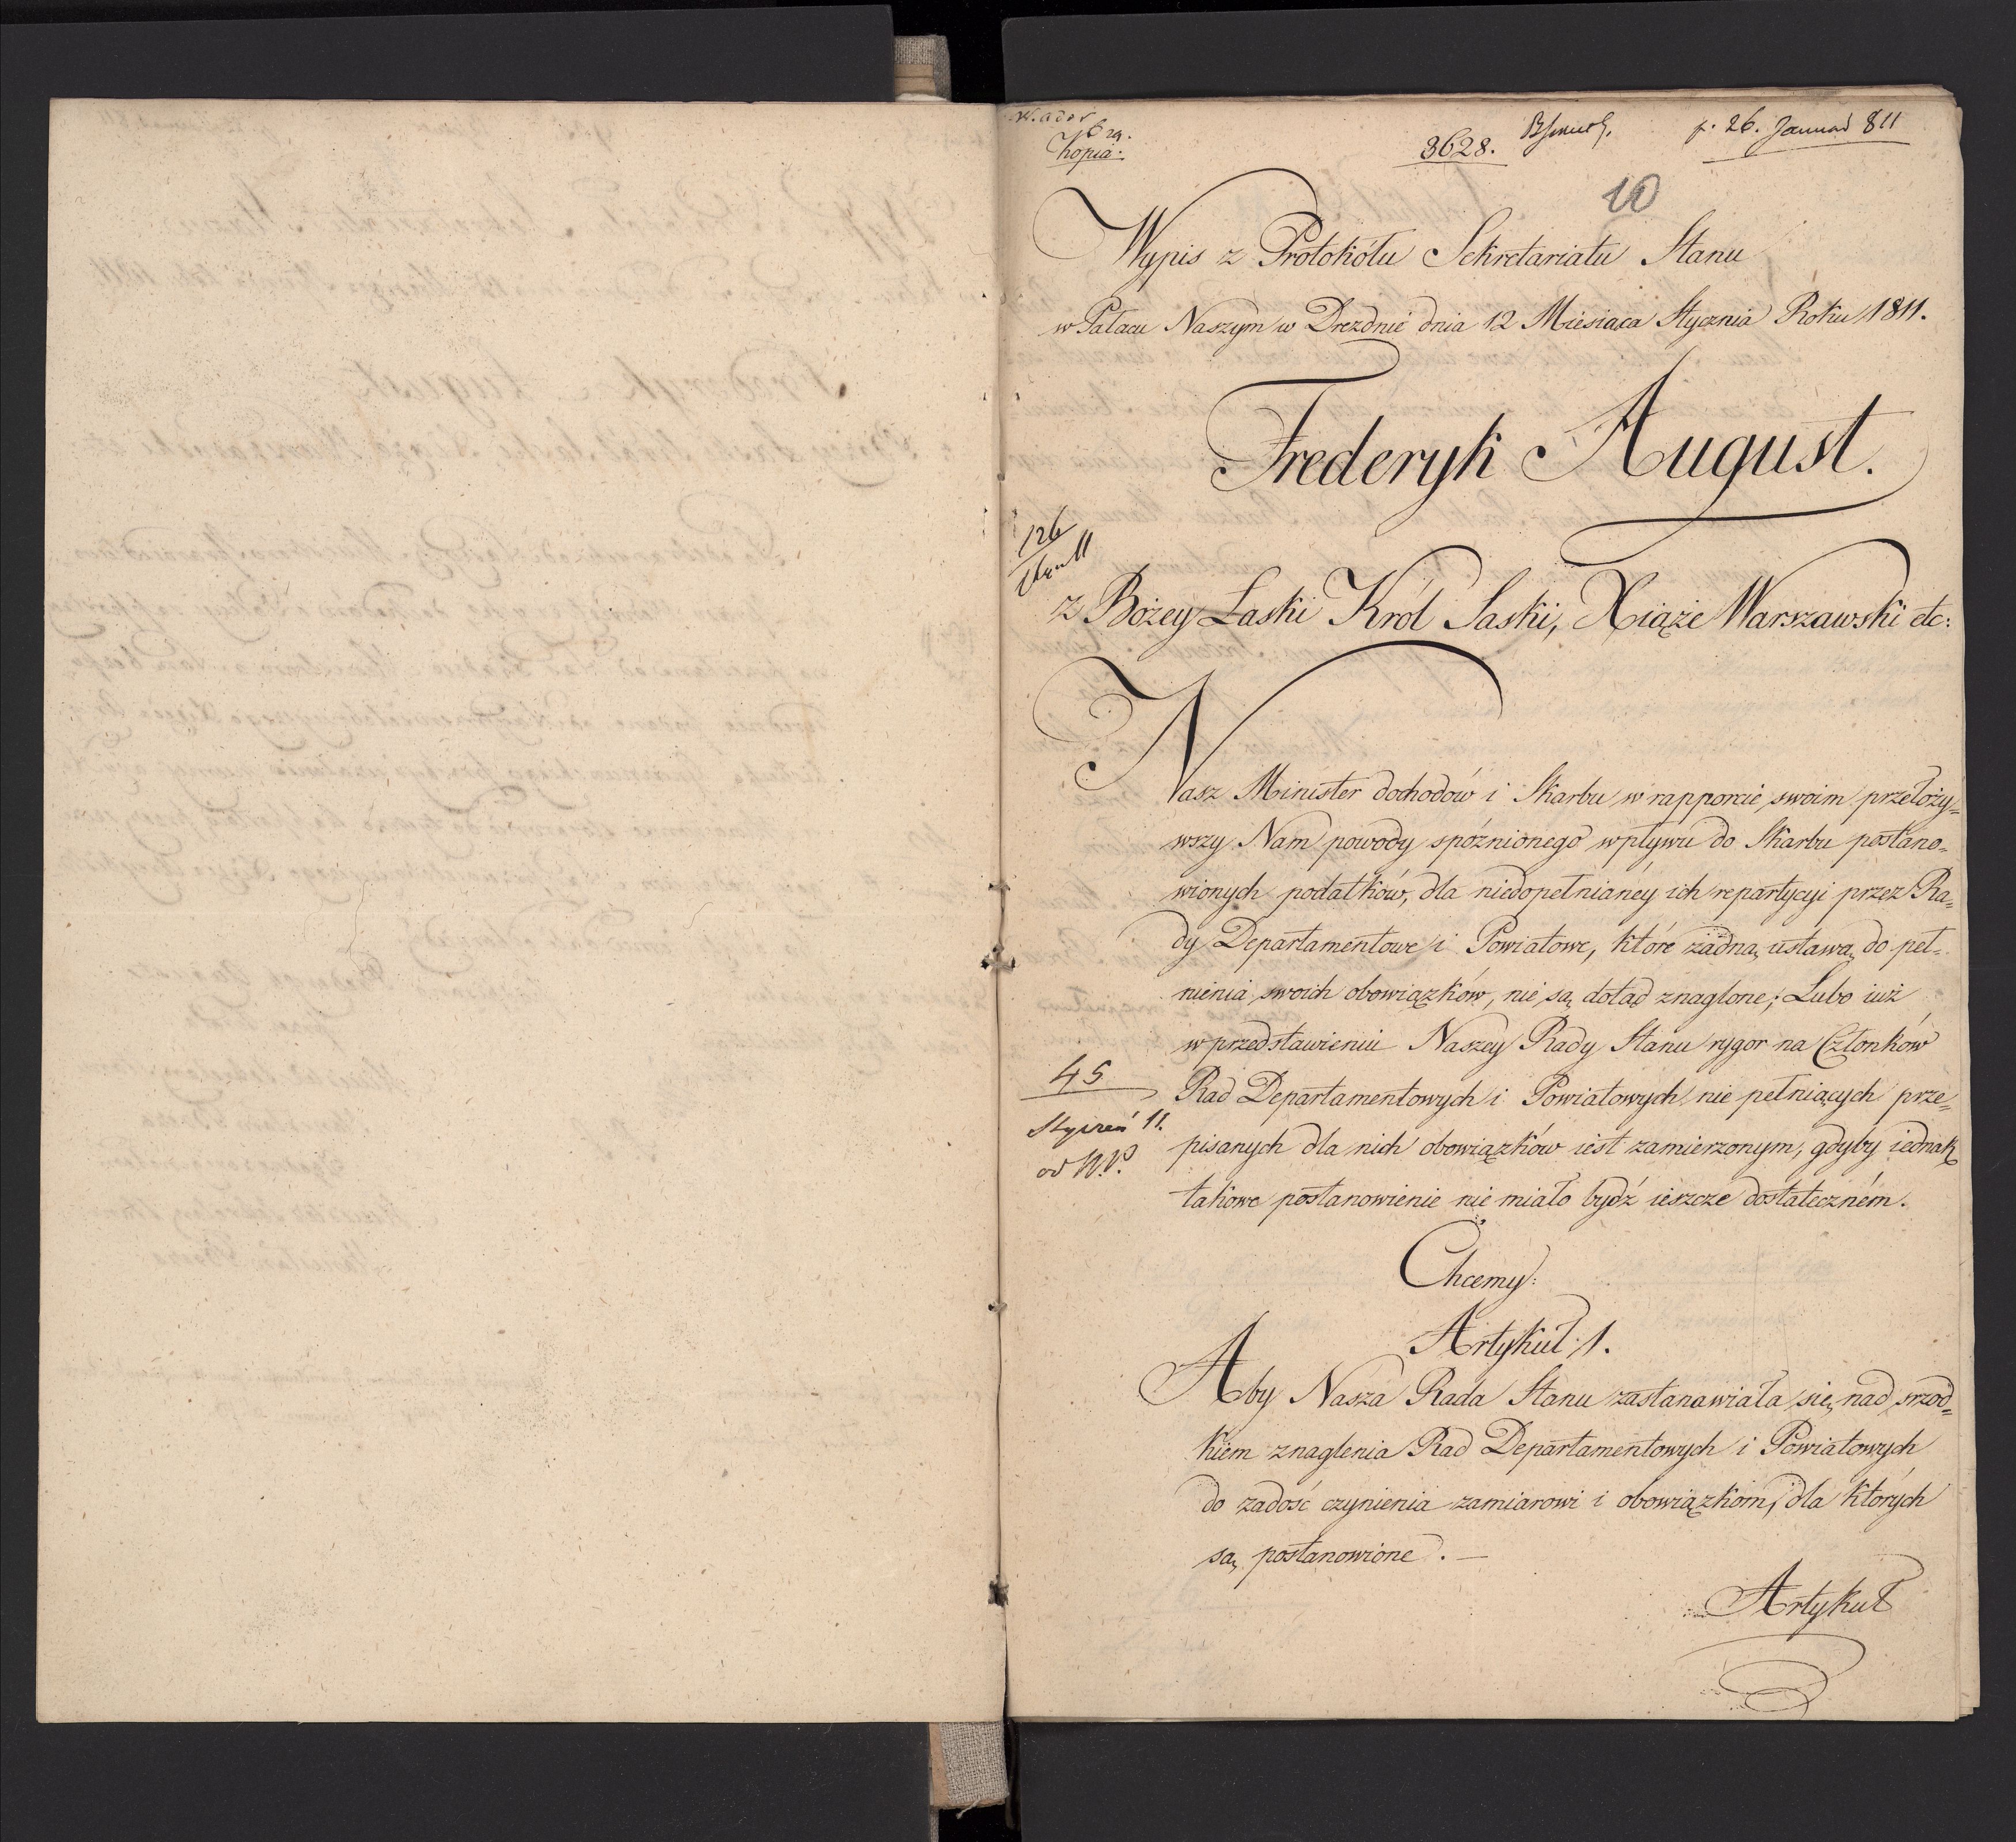 Kopia.
3628.
p. 26. Januar 811
10
Wypis z Protokółu Sekretariatu Stanu
w Pałacu Naszym w Dreznie dnia 12 Miesiąca Stycznia Roku 1811.
Frederyk August.
126
z Bożey Łaski Król Saski, Xiąże Warszawski etc:
Nasz Minister dochodów i Skarbu w rapporcie swoim przełoży=
wszy Nam powody spóznionego wpływu do Skarbu postano=
wionych podatków, dla niedopełnianéy ich repartycyi przez Ra=
dy Departamentowe i Powiatowe, które żadną ustawą do peł=
nienia swoich obowiązków, nie są dotąd znaglone; Lubo iuż
w przedstawieniu Naszey Rady Stanu rygor na Członków
Rad Departamentowych i Powiatowych nie pełniących prze=
pisanych dla nich obowiązków iest zamierzonym, gdyby iednak
takowe postanowienie nie miało bydź ieszcze dostateczném.
45
Styczeń 11.
od
Chcemy:
Artykuł 1.
Aby Nasza Rada Stanu zastanawiała się nad srzod=
kiem znaglenia Rad Departamentowych i Powiatowych
do zadość czynienia zamiarowi i obowiązkom, dla których
są postanowione. —
Artykuł